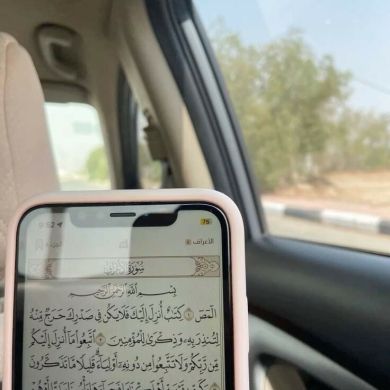 9:52 75
الأعراف الجزء
سُورَةُ الأَعْرَافِ
بِسْمِ اللَّهِ الرَّحْمَٰنِ الرَّحِيمِ
الٓمٓصٓ ١ كِتَٰبٌ أُنزِلَ إِلَيْكَ فَلَا يَكُن فِي صَدْرِكَ حَرَجٌ مِّنْهُ
لِتُنذِرَ بِهِۦ وَذِكْرَىٰ لِلْمُؤْمِنِينَ ٢ ٱتَّبِعُوا۟ مَآ أُنزِلَ إِلَيْكُم
مِّن رَّبِّكُمْ وَلَا تَتَّبِعُوا۟ مِن دُونِهِۦٓ أَوْلِيَآءَ قَلِيلًا مَّا تَذَكَّرُونَ